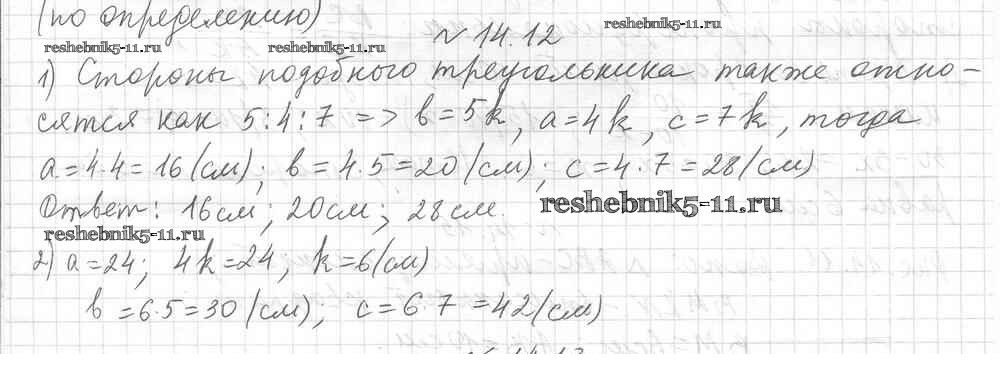 (по определению)
№ 14.12
reshebnik5-11.ru
reshebnik5-11.ru
reshebnik5-11.ru
1) Стороны подобного треугольника также отно-
сятся как 5:4:7 => b=5k, a=4k, c=7k, тогда
a=4·4=16(см); b=4·5=20(см); c=4·7=28(см)
Ответ: 16см; 20см; 28см.
reshebnik5-11.ru
reshebnik5-11.ru
2) a=24; 4k=24, k=6(см)
b=6·5=30(см); c=6·7=42(см)